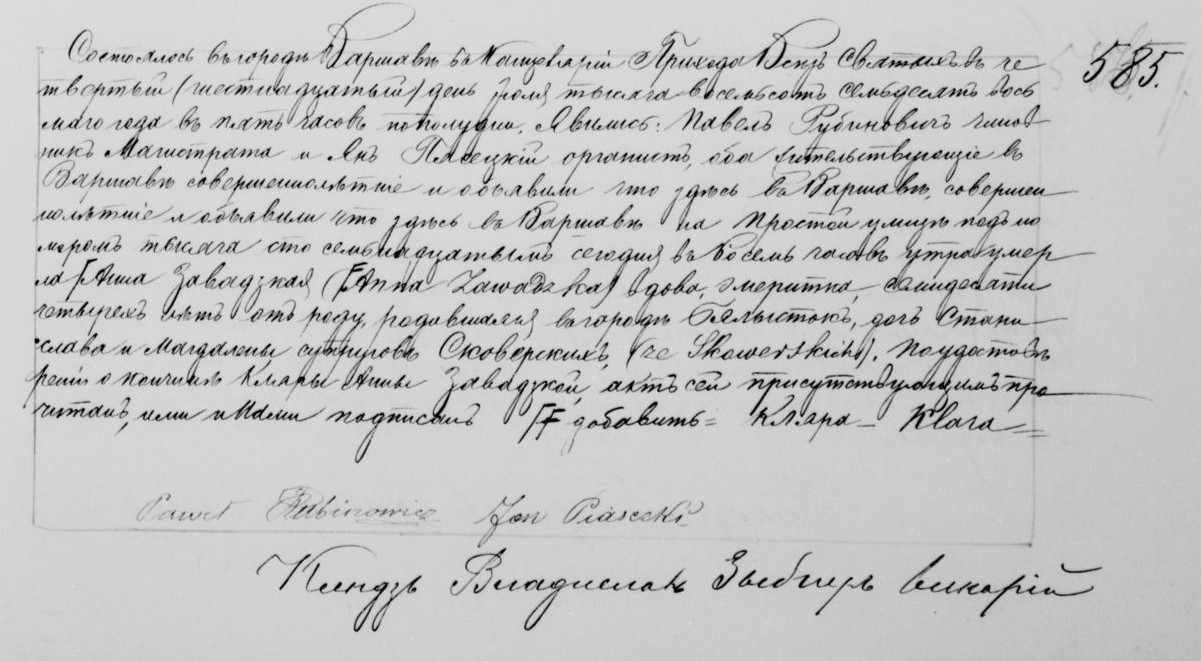 Состоялось въ городѣ Варшавѣ въ Канцеляріи Прихода Всѣхъ Святыхъ въ че
твертый (шестнадцатый) день Іюля тысяча восемьсотъ семьдесятъ вось
маго года въ пять часовъ по полудни. Явились: Павелъ Рубиновичъ чинов
никъ Магистрата и Янъ Пясецкій органистъ, оба жительствующіе въ
Варшавѣ совершеннолѣтніе и объявили что здѣсь въ Варшавѣ, совершен
нолѣтніе и объявили что здѣсь въ Варшавѣ на Простой улицѣ подъ но
меромъ тысяча сто семнадцатымъ сегодня въ восемь часовъ утра умер
ла Анна Завадзкая (Anna Zawadzka) вдова, эмеритка, семидесяти
четырехъ лѣтъ отъ роду, родившаяся въ городѣ Бялыстокъ, дочь Стани
слава и Магдалены супруговъ Сковерскихъ, (че Skowerskich). По удостовѣ
реніи о кончинѣ Клары Анны Завадзкой, актъ сей присутствующимъ про
читанъ, ими и Нами подписанъ добавить = Кляра – Klara =
585.
Paweł Rubinowicz Jan Piasecki
Ксендзъ Владиславъ викарій